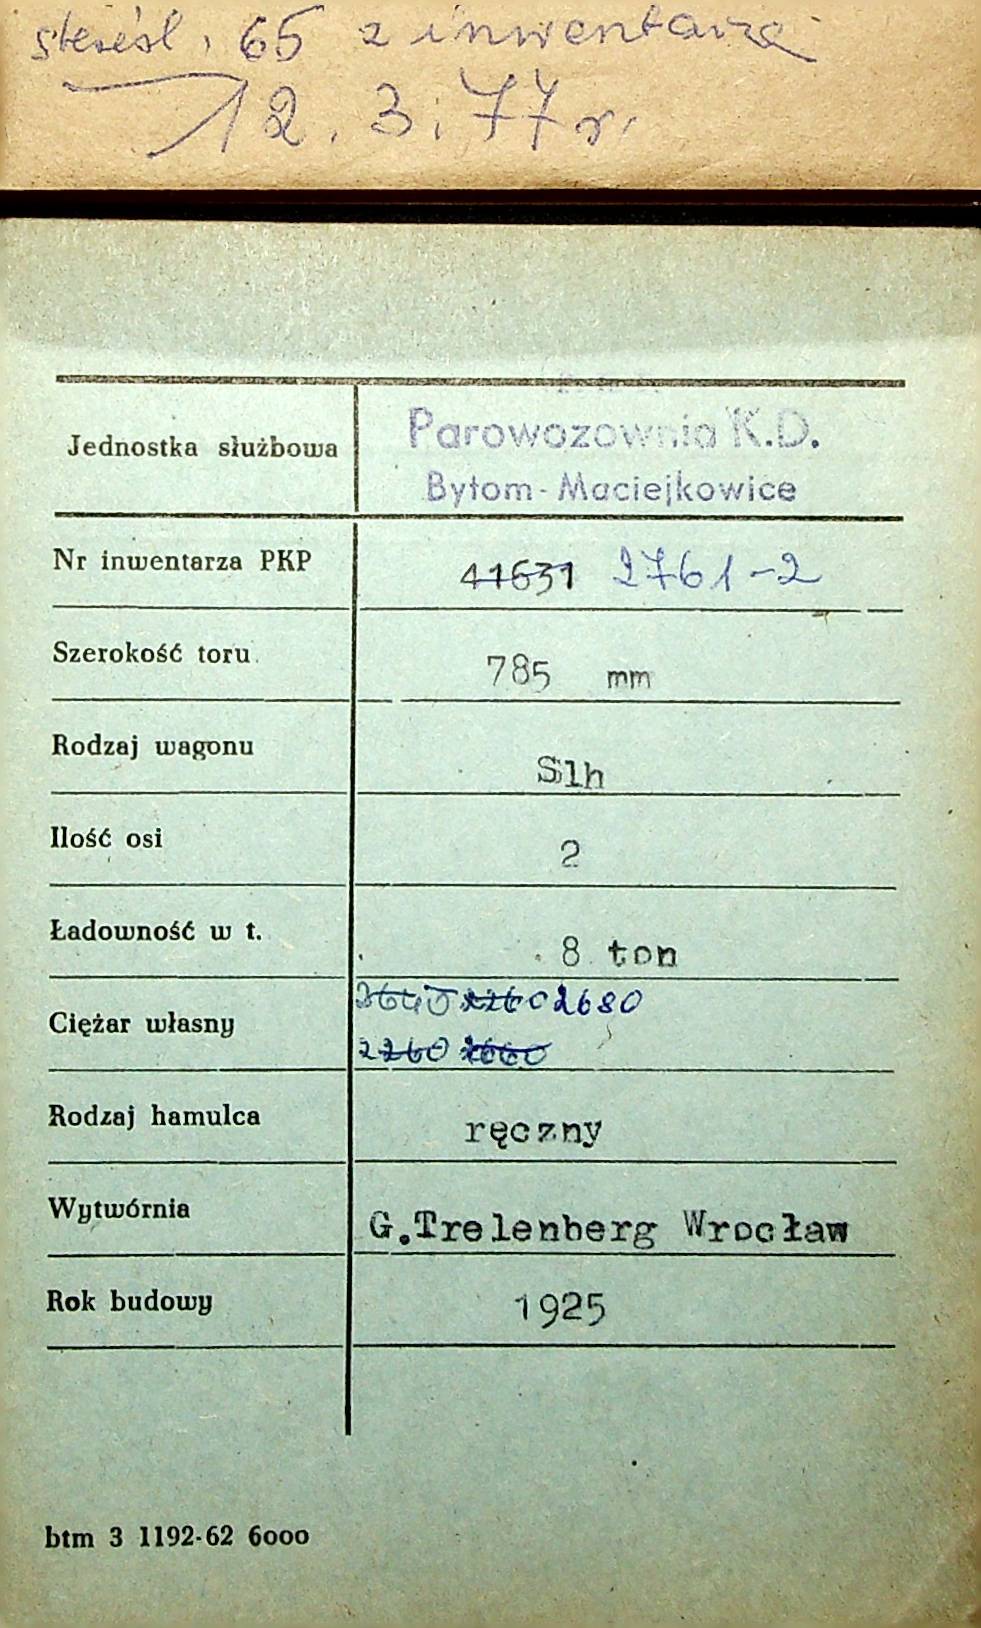 skreśl. 65 z inwentarza
12.3.77 r.
Parowozownia K.D.
Jednostka służbowa
Bytom-Maciejkowice
Nr inwentarza PKP 41631 2761-2
Szerokość toru 785 mm
Rodzaj wagonu Slh
Ilość osi 2
Ładowność w t. 8 ton
2680
Ciężar własny
2260
Rodzaj hamulca ręczny
Wytwórnia G.Trelenberg Wrocław
Rok budowy 1925
btm 3 1192-62 6000